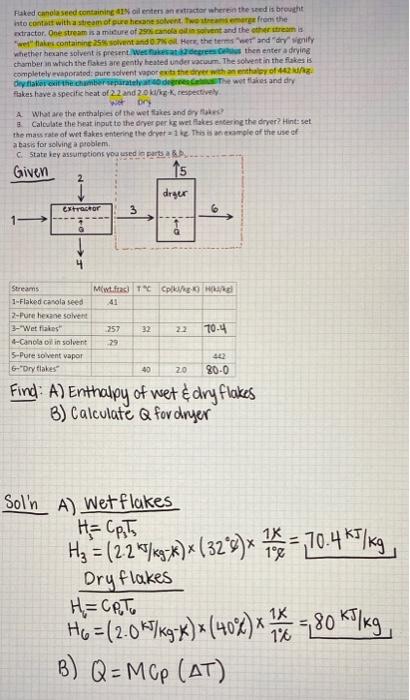 Flaked canola seed containing 41% oil enters an extractor wherein the seed is brought
into contact with a stream of pure hexane solvent. Two streams emerge from the
extractor. One stream is a mixture of 29% canola oil in solvent and the other stream is
"wet" flakes containing 25% solvent and 0.7% oil. Here, the terms "wet" and "dry" signify
whether hexane solvent is present. Wet flakes at 32 degrees Celsius then enter a drying
chamber in which the flakes are gently heated under vacuum. The solvent in the flakes is
completely evaporated; pure solvent vapor exits the dryer with an enthalpy of 442 kJ/kg.
Dry flakes exit the chamber separately at 40 degrees Celsius. The wet flakes and dry
flakes have a specific heat of 2.2 and 2.0 kJ/kg-K, respectively.
wet Dry
A. What are the enthalpies of the wet flakes and dry flakes?
B. Calculate the heat input to the dryer per kg wet flakes entering the dryer? Hint: set
the mass rate of wet flakes entering the dryer = 1 kg. This is an example of the use of
a basis for solving a problem.
C. State key assumptions you used in parts a & b.
Given
2
5
dryer
1
extractor
3
6
Q
Q
4
Streams M(wt.frac) T °C Cp(kJ/kg-K) H(kJ/kg)
1-Flaked canola seed .41
2-Pure hexane solvent
3-"Wet flakes" .257 32 2.2 70.4
4-Canola oil in solvent .29
5-Pure solvent vapor 442
6-"Dry flakes" 40 2.0 80.0
Find: A) Enthalpy of wet & dry flakes
B) Calculate Q for dryer
Sol'n A) Wet flakes
H₃ = Cp₃T₃
H₃ = (2.2 kJ/kg-K) × (32°C) × 1K/1°C = 70.4 kJ/kg
Dry flakes
H₆ = CP₆T₆
H₆ = (2.0 kJ/kg-K) × (40°C) × 1K/1°C = 80 kJ/kg
B) Q = MCp (ΔT)